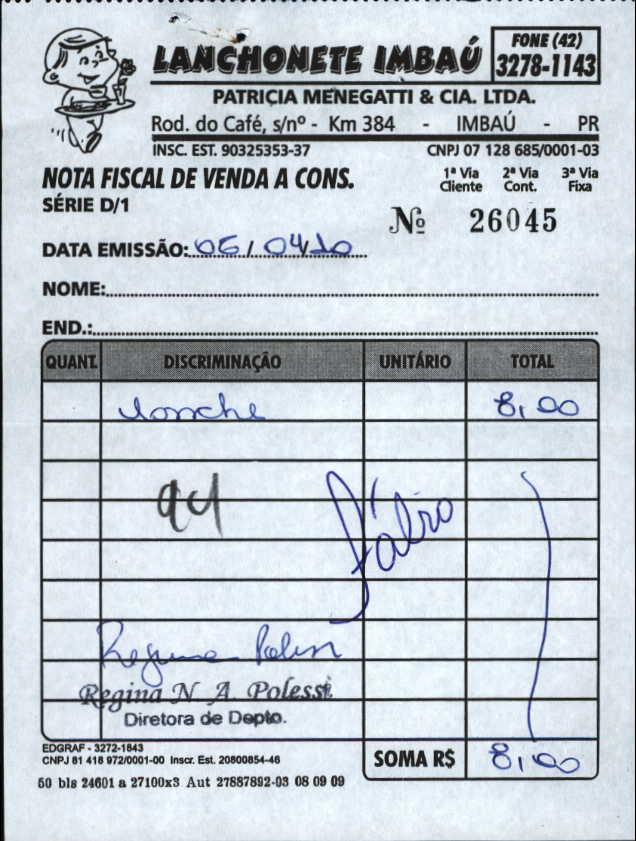 LANCHONETE IMBAÚ
FONE (42)
3278-1143
PATRICIA MENEGATTI & CIA. LTDA.
Rod. do Café, s/nº - Km 384 - IMBAÚ - PR
INSC. EST. 90325353-37 CNPJ 07 128 685/0001-03
NOTA FISCAL DE VENDA A CONS.
SÉRIE D/1
1ª Via Cliente 2ª Via Cont. 3ª Via Fixa
Nº 26045
DATA EMISSÃO: 06/04/10
NOME:
END.:
QUANT. DISCRIMINAÇÃO UNITÁRIO TOTAL
Lanche 8,00
94
Fábio
Regina Polessi
Regina N. A. Polessi
Diretora de Depto.
EDGRAF - 3272-1843
CNPJ 81 418 972/0001-00 Inscr. Est. 20800854-46
SOMA R$ 8,00
50 bls 24601 a 27100x3 Aut 27887892-03 08 09 09